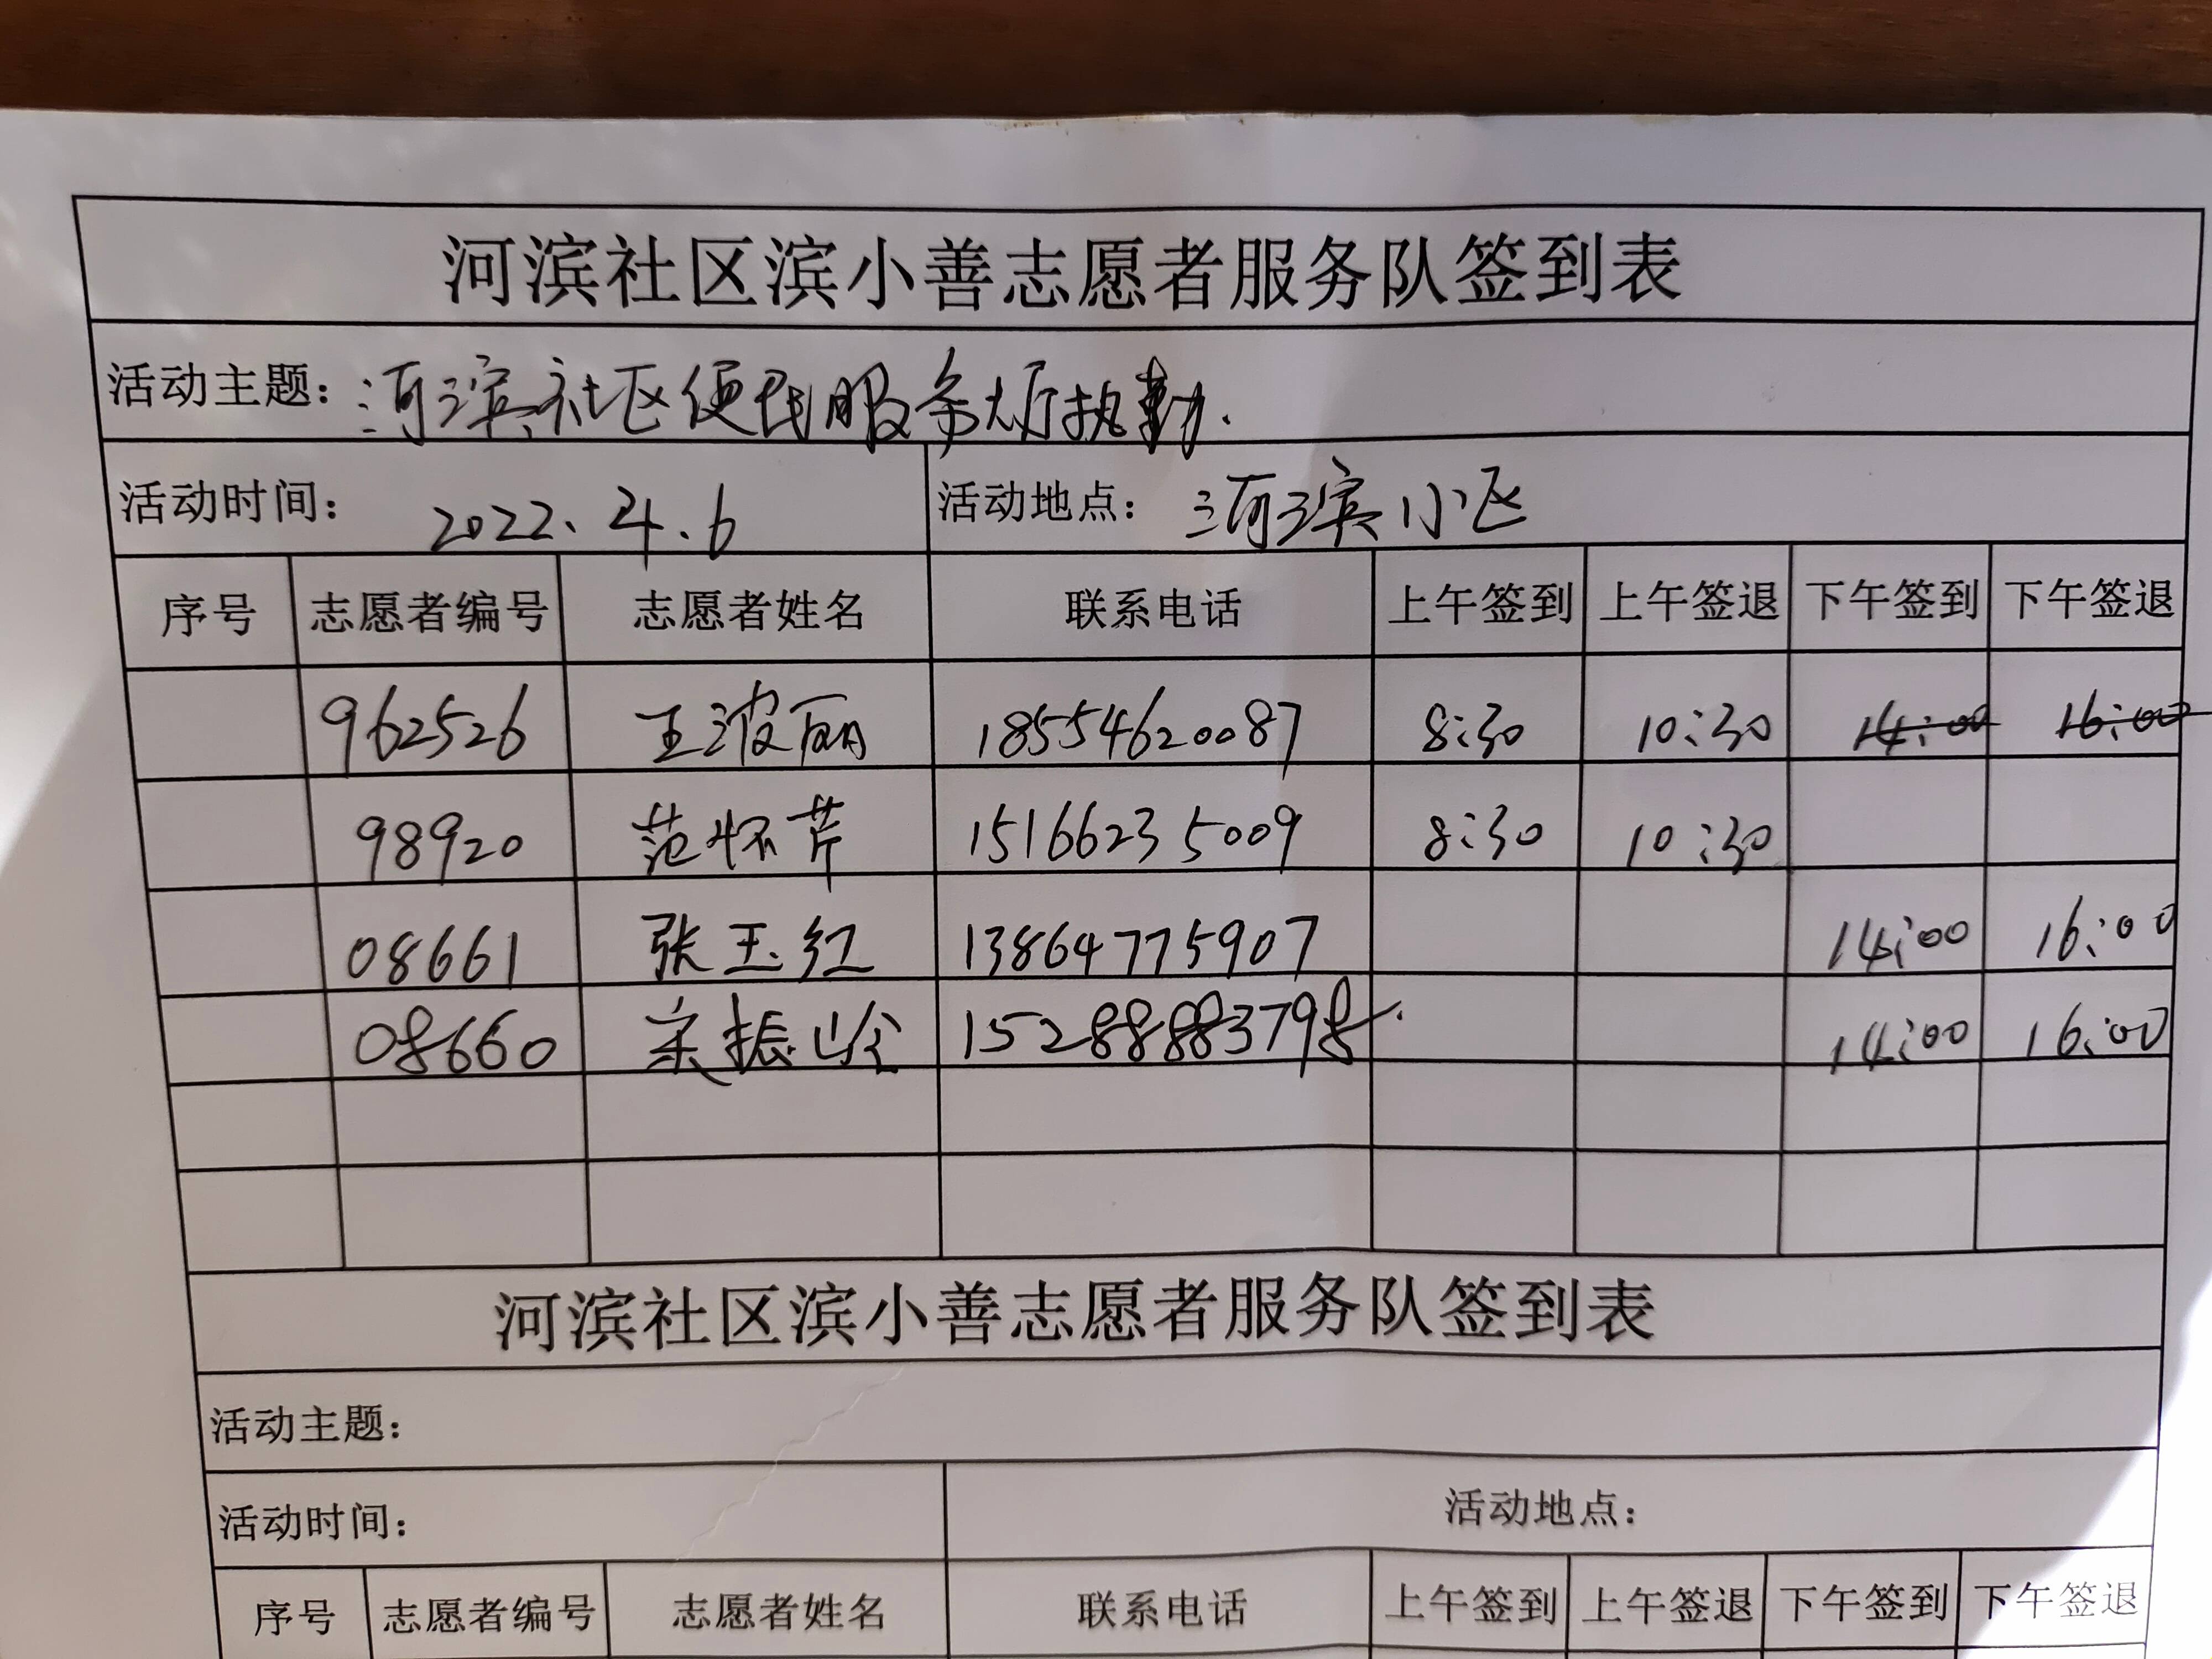 河滨社区滨小善志愿者服务队签到表
活动主题：河滨社区便民服务大厅执勤.
活动时间： 2022.4.6 活动地点： 河滨小区
序号 志愿者编号 志愿者姓名 联系电话 上午签到 上午签退 下午签到 下午签退
962526 王波丽 18554620087 8:30 10:30 14:00 16:00
98920 范怀芹 15166235009 8:30 10:30
08661 张玉红 13864775907 14:00 16:00
08660 宋振岭 15288883798 14:00 16:00
河滨社区滨小善志愿者服务队签到表
活动主题：
活动时间： 活动地点：
序号 志愿者编号 志愿者姓名 联系电话 上午签到 上午签退 下午签到 下午签退